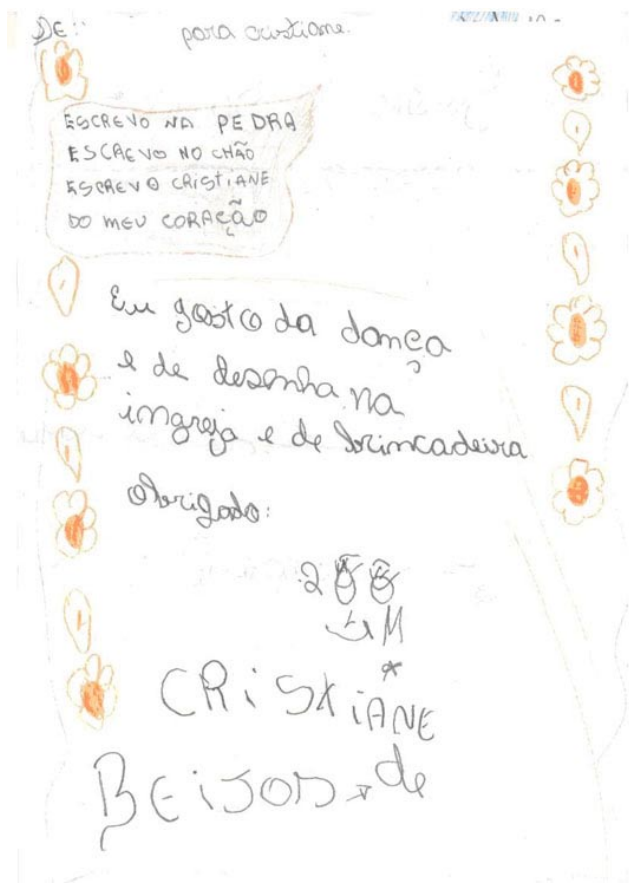 DE:
para cristiane.
ESCREVO NA PEDRA
ESCREVO NO CHÃO
ESCREVO CRISTIANE
DO MEU CORAÇÃO
Eu gosto da dança
e de desenha na
ingreja e de brincadeira
obrigado:
CRiStiANE
BEiJOS de